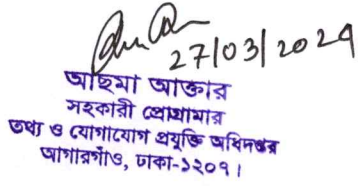 27/03/2024
আছমা আক্তার
সহকারী প্রোগ্রামার
তথ্য ও যোগাযোগ প্রযুক্তি অধিদপ্তর
আগারগাঁও, ঢাকা-১২০৭।